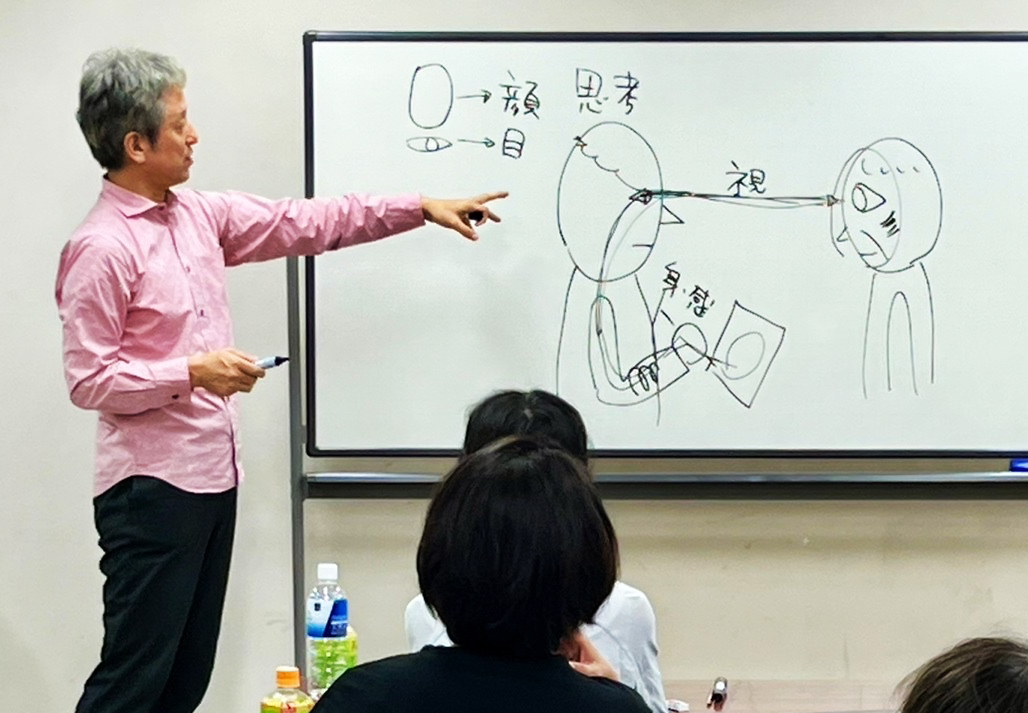 顔 思考
目
視
身・感